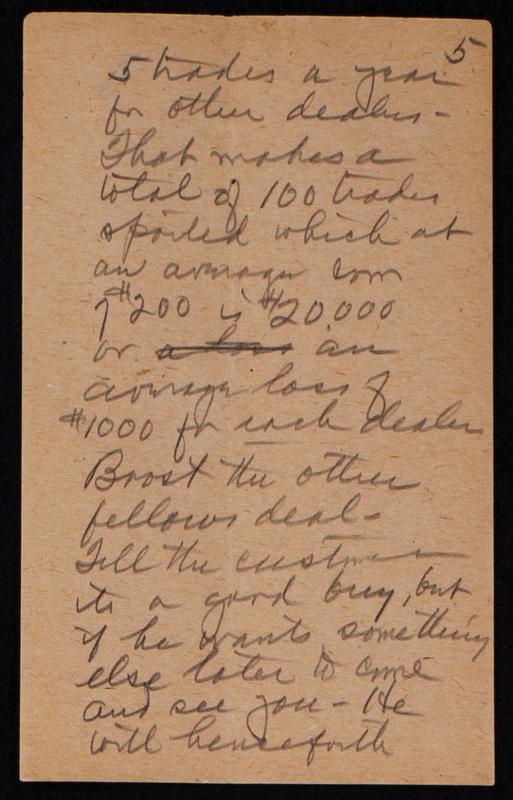 5
5 trades a year
for other dealers -
That makes a
total of 100 trades
spoiled which at
an average
of $200 is $20000
or a loss an
average loss of
$1000 for each dealer
Boost the other
fellows deal -
Tell the customer
its a good buy, but
if he wants something
else later to come
and see you - He
will henceforth